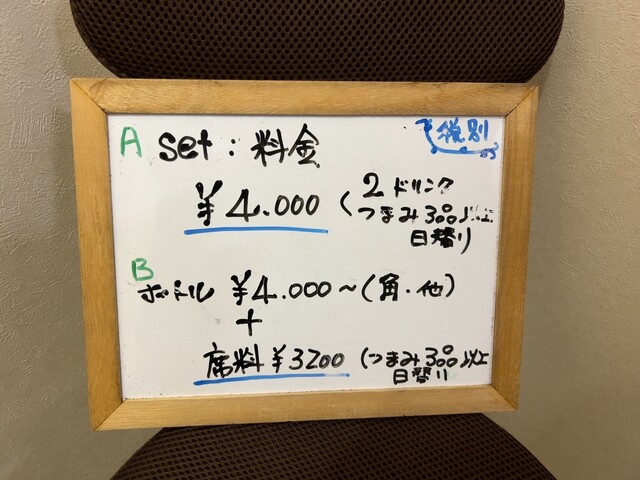 税別
A set:料金
¥4.000 (2ドリンク
つまみ3品以上
日替り
B
ボトル ¥4.000~(角・他)
+
席料¥3200 (つまみ3品以上
日替り